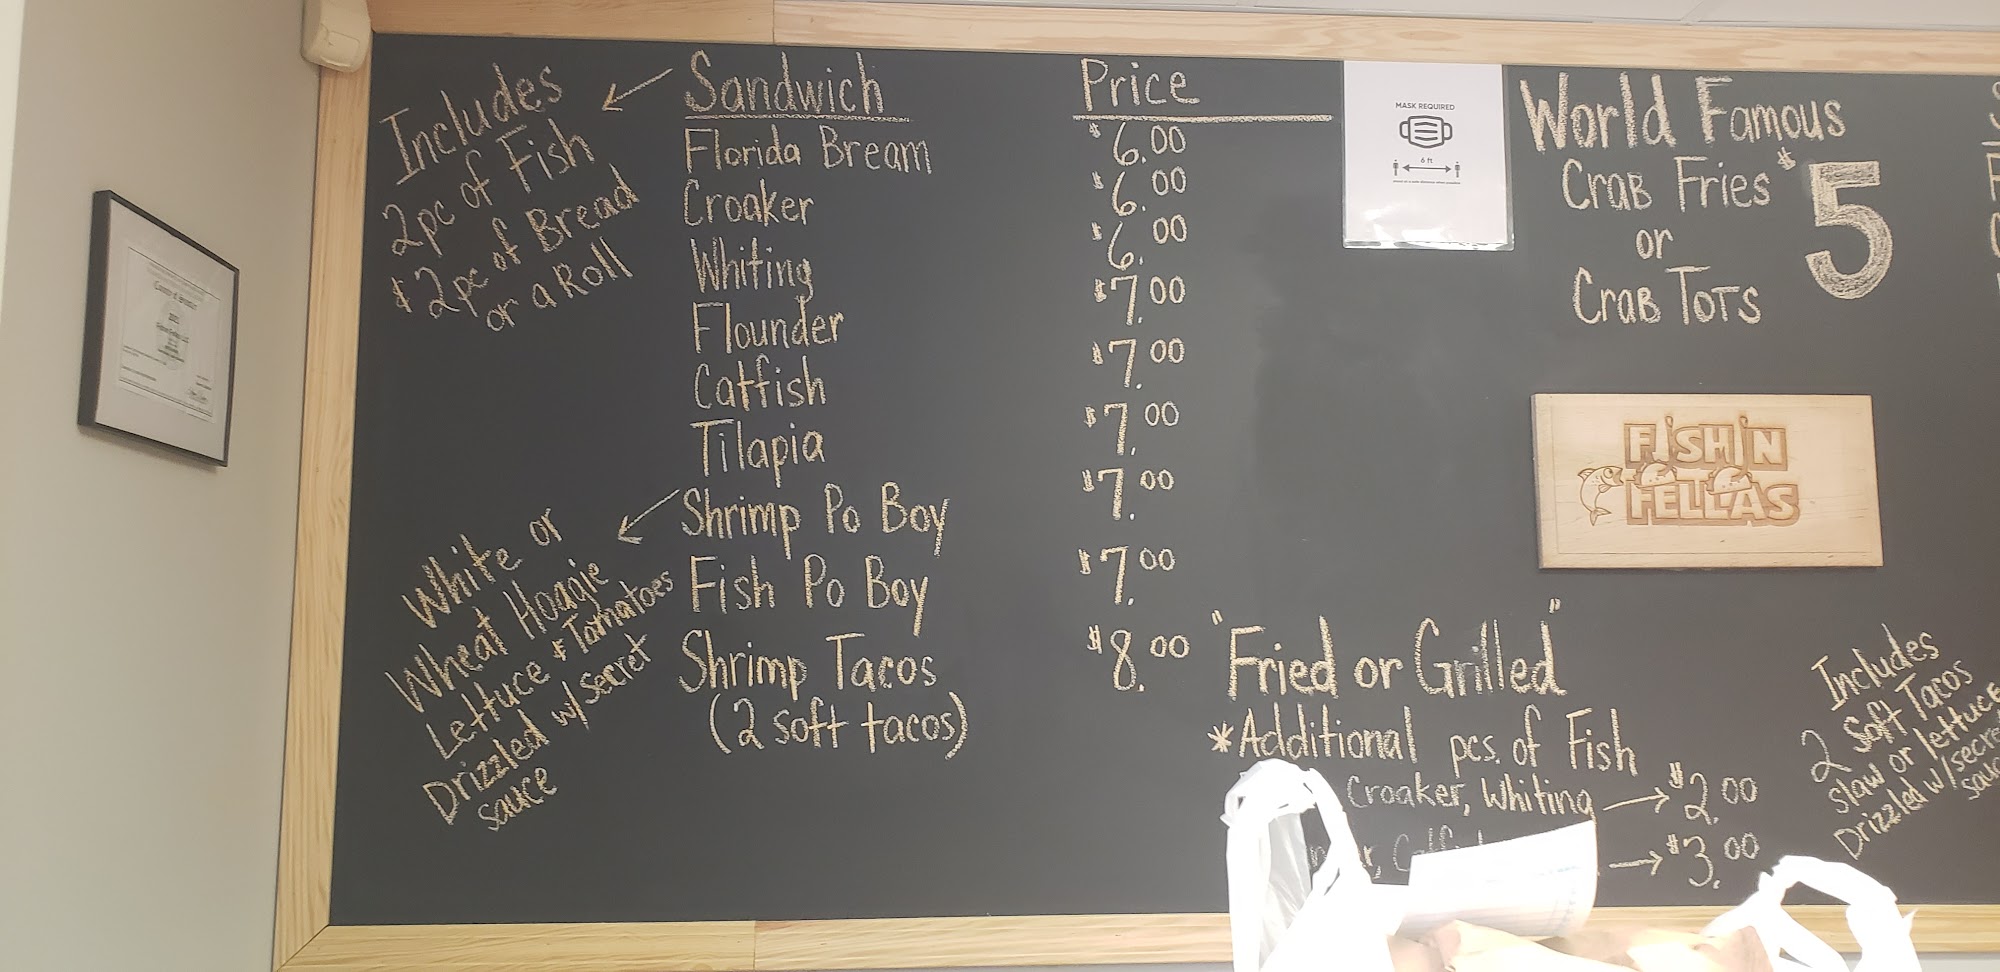 Includes
2pc of Fish
& 2pc of Bread
or a Roll
Sandwich
Price
Florida Bream $6.00
Croaker $6.00
Whiting $6.00
Flounder $7.00
Catfish $7.00
Tilapia $7.00
Shrimp Po Boy $7.00
Fish Po Boy $7.00
Shrimp Tacos $8.00
(2 soft tacos)
White or
Wheat Hoagie
Lettuce & Tomatoes
Drizzled w/ secret
sauce
MASK REQUIRED
6 ft
World Famous
Crab Fries $5
or
Crab Tots
FISHIN
FELLAS
"Fried or Grilled"
*Additional pcs. of Fish
Croaker, Whiting → $2.00
→ $3.00
Includes
2 Soft Tacos
slaw or lettuce
Drizzled w/ secret